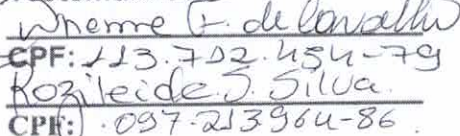 F. de Carvalho
CPF: 113.702.454-79
Rozileide. S. Silva.
CPF: 097-213964-86.